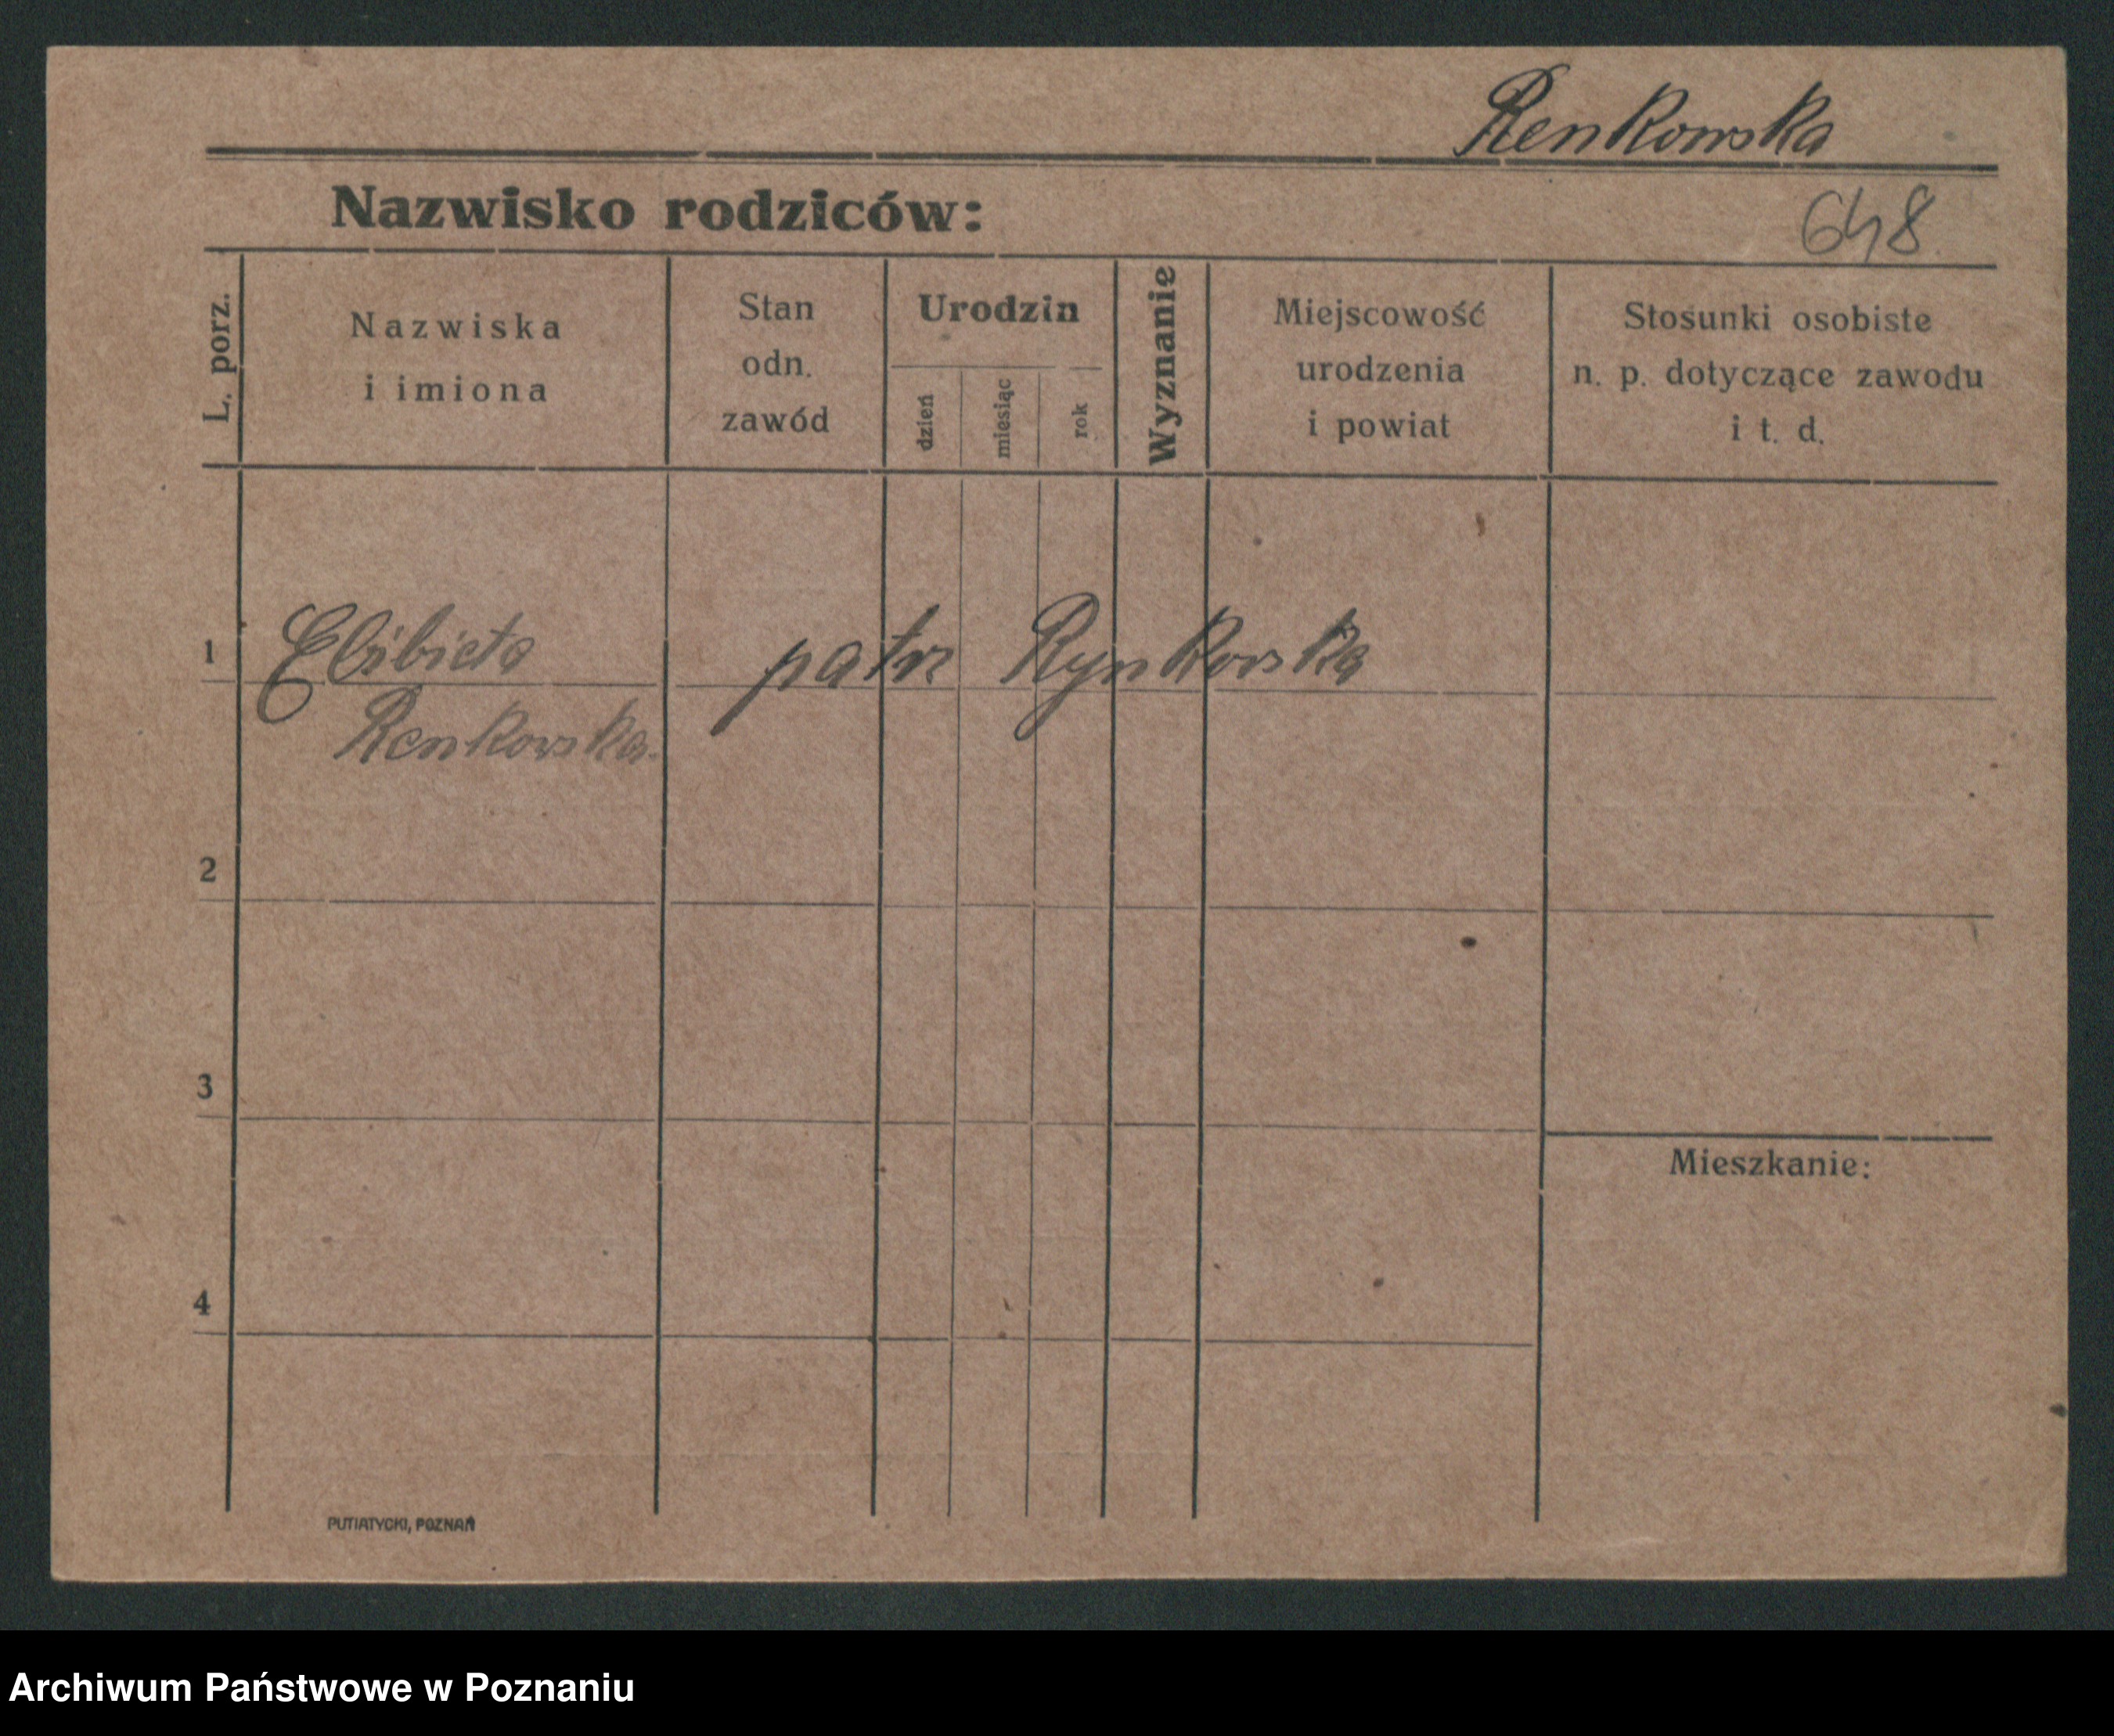 Renkowska
Nazwisko rodziców:
648
L. porz.
Nazwiska
i imiona
Stan
odn.
zawód
Urodzin
dzień
miesiąc
rok
Wyznanie
Miejscowość
urodzenia
i powiat
Stosunki osobiste
n. p. dotyczące zawodu
i t. d.
1 Elżbieta patrz Rynkowska
Renkowska.
2
3
Mieszkanie:
4
PUTIATYCKI, POZNAŃ
Archiwum Państwowe w Poznaniu